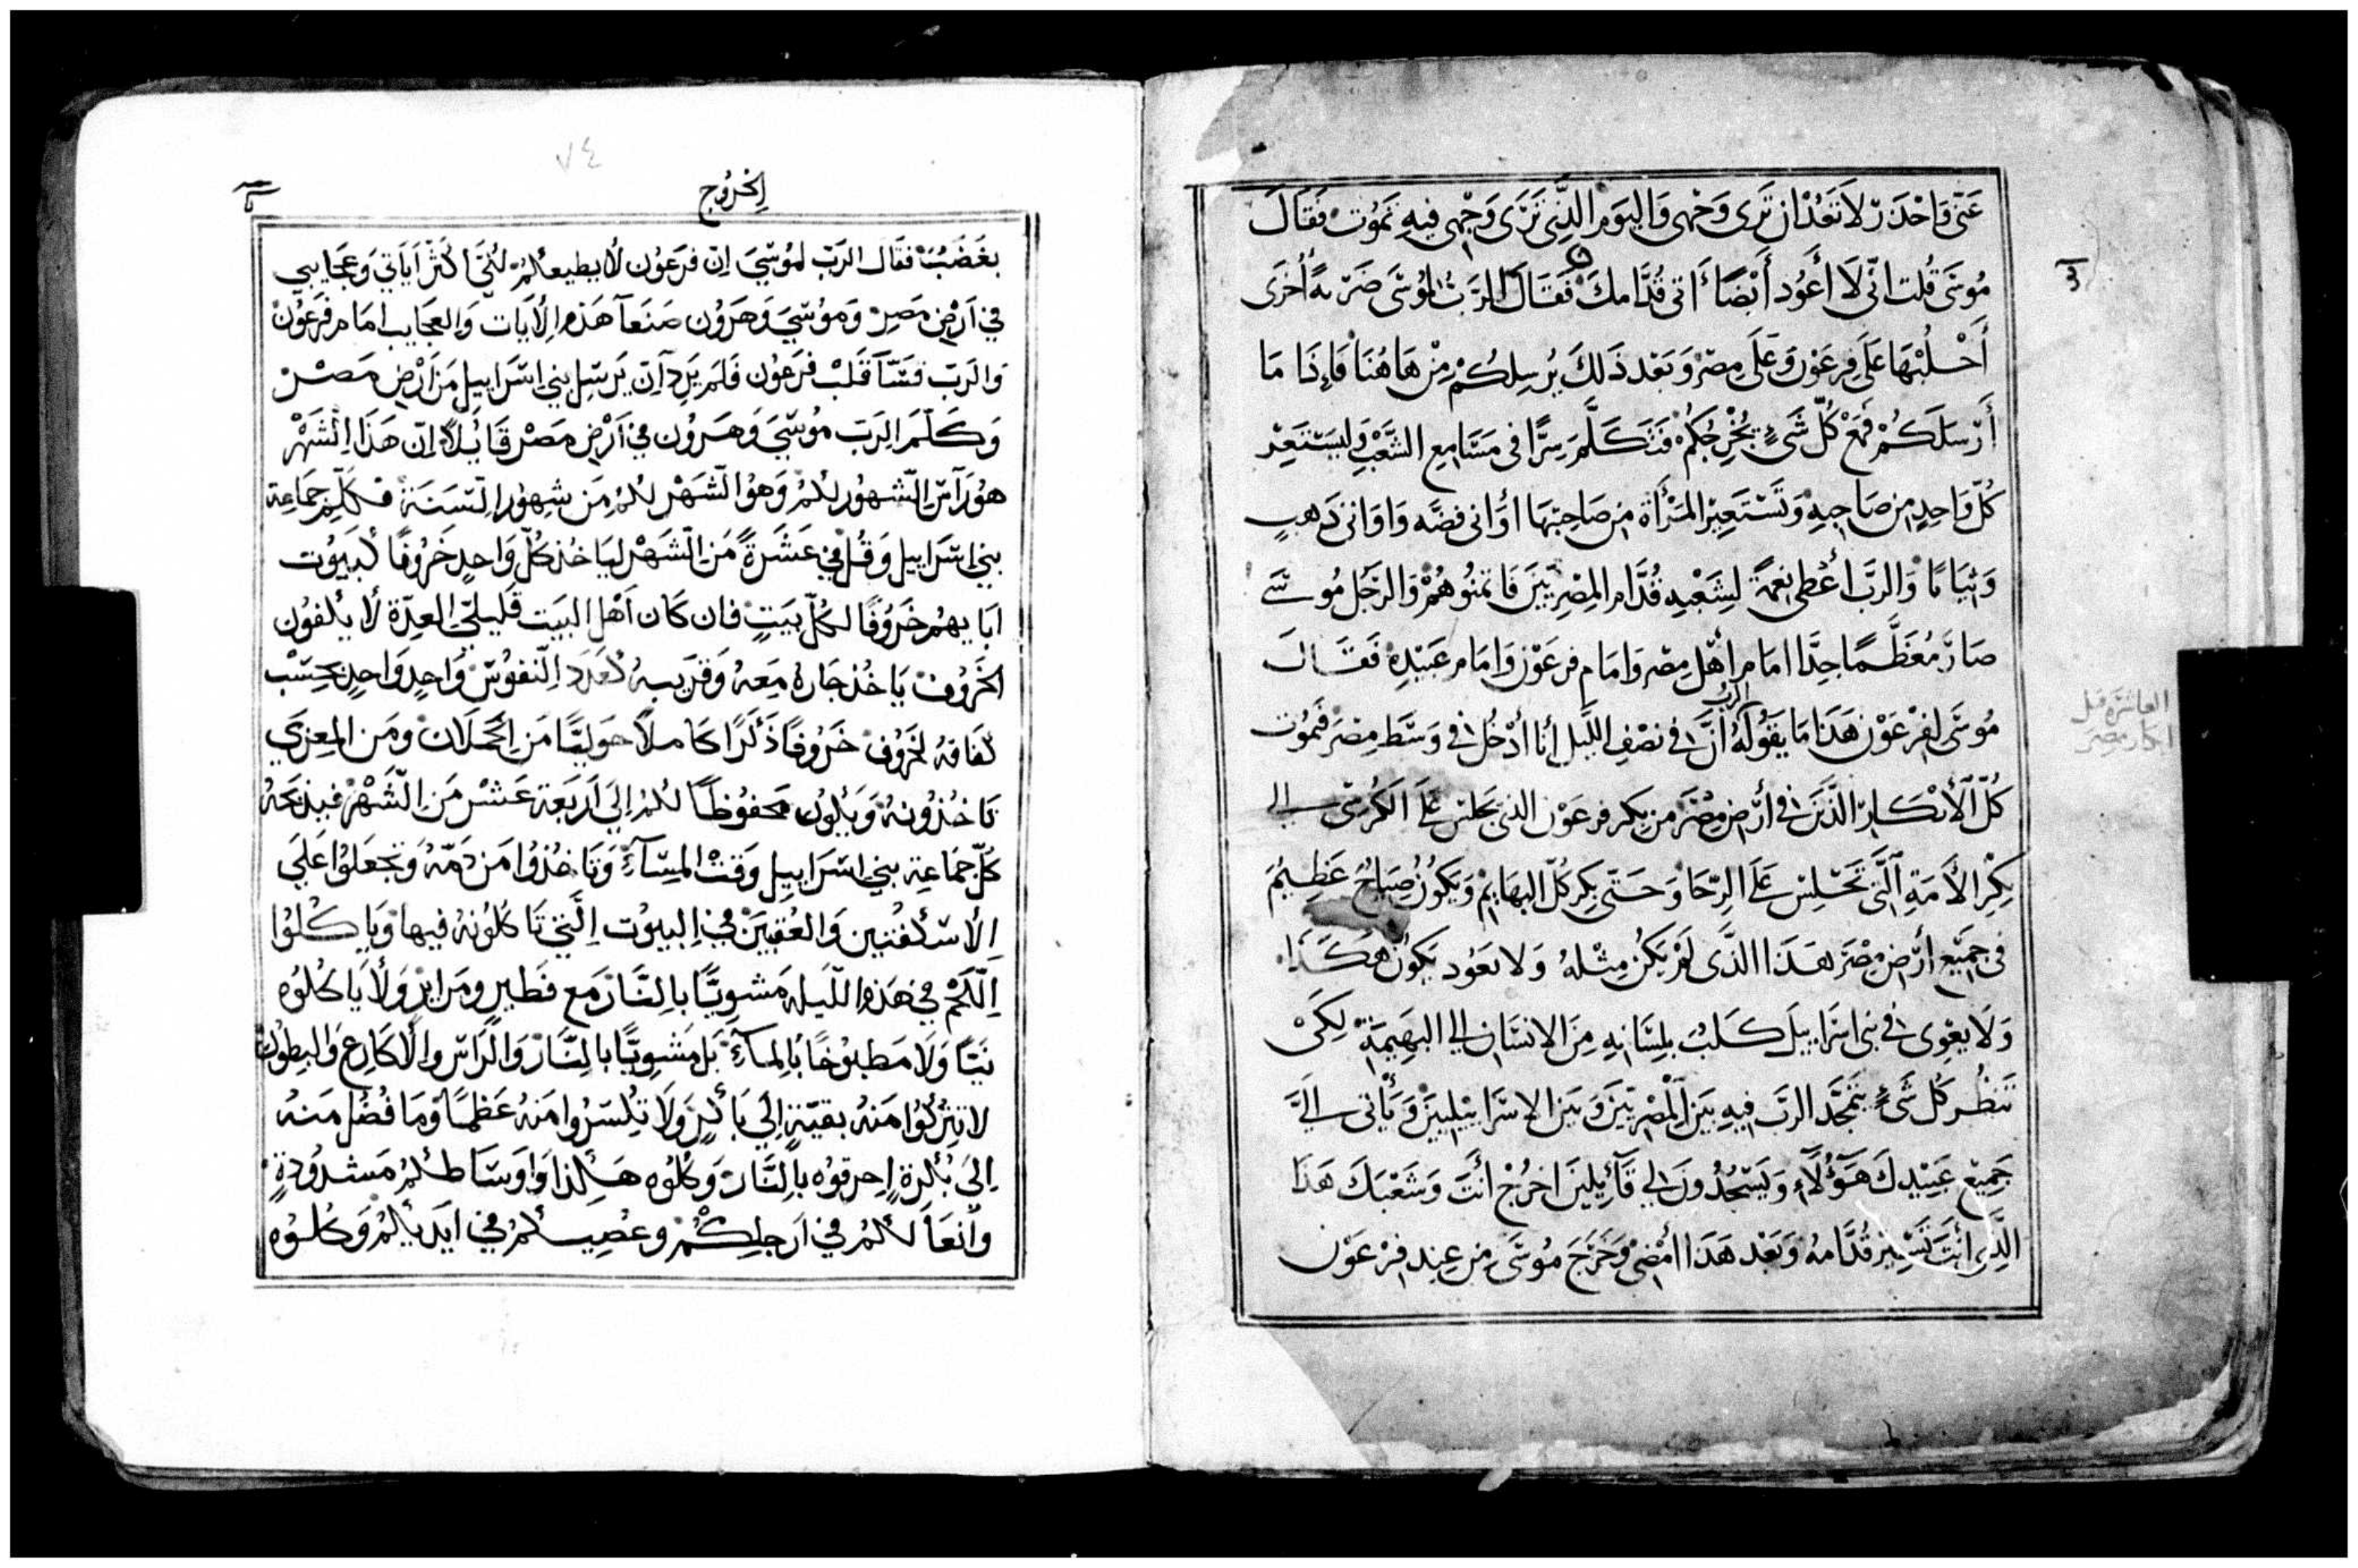 عَنّى فَاحْدَر لاَ تَعُدْ ان تَرى وَجْهى وَاليوَم الذِّى تَرَى وَجْهى فيهِ تَمَوُت فَقَالَ
مُوسَى قُلت انّى لَا أَعَوُد أَيْضًا أَاتى قُدَّامكَ فَقَالَ الرَّبُ لمُوسَى ضَرْبهً أُخرَى
أَجْلُبْهَا عَلَى فِرعَوْن وَعَلَى مِصْر وَبَعْد ذَلكَ يُرسِلكُمْ مِنْ هَاهُنَا فَإِذَا مَا
أَرْسلَكُمْ فَمَعْ كُلّ شَئٍ يُخْرِجُكمُ فَتَكَلَّمَ سِرًّا فى مَسَامِع الشَّعْب وَليسَتَعِرْ
كُلّ وَاحِدٍ مِن صَاحِبِهِ وَتَسْتَعِيْر المَرْأَة مِن صَاحِبْهَا اوَانى فضَّه وَاوَانى ذَهبٍ
وَثيَابًا وَالربَّ أعْطى نِعمَةً لِشَعْبِهِ قُدَّام المِصْريّيَن فَاتمنُوهُمْ وَالرَجُل مُوسَى
صَارَ مُعَظَّمًا جِدًّا امَام أهْل مِصْر وَامَام فرعَوْن وَامَام عَبِيْدِهِ فَقَالَ
الربُ
مُوسَى لفِرْعَوْن هَذَا مَا يَقُولهُ أنَّ فى نصْفِ اللَّيل أنا أدْخُل فى وَسَّط مِصْرَ فَيمُوت
كُلّ الأبْكَار الذَّيَن فى أرْض مِصْرَ مِن بكر فرعَوْن الذى يَجلسْ عَلَى الكرُسّى إلى
بِكِر الأَمَةِ الَّتى تَجْلِسْ عَلَى الرّحَا وَحَتَى بكِر كلّ البهَايم وَيَكُونُ صِيَاحٌ عَظيمٌ
فى جَميْع أرْض مِصْرَ هَذَا الذَّى لَمْ يَكُن مِثْلهُ وَلا يعَوُد يَكوُنْ هَكَذَا
وَلَا يعْوِى فى بنى اسْرَاييلَ كَلبٌ بلِسَانهِ مِنَ الانسَان إلى البَهيمَةْ لكَىْ
تَنظُر كُل شَىءٍ يَتمجَّد الربَّ فيِهِ بَيَن المْصْريّيَن وَبَيَن الاسْرَاييْليينَ وَيَأْتى إلىَّ
جَميْع عَبيْدِكَ هَؤُلَاءِ وَيَسْجُدُونَ لى قَآئيِلينَ اخرُجْ انْتَ وَشَعْبَكَ هَذَا
الَّذِى انْتَ تَسِيْر قُدَّامهُ وَبَعْد هَذَا أمْضى وَخَرَجَ مُوسَى مِن عِند فِرْعَوْن
العاشرة قتل
ابكار مصر
٧٤
الخروج
بغَضَبٍ فقَال الرَبّ لموُسَي اِنّ فرَعوُن لا يطيعكمُ لكَي اكثرّ ايَاتي وَعَجَايبي
في اَرْض مَصِرْ وَموُسَي وَهَرَوُن صَنعَآ هَذه الأيَات وَالعجَايب امَام فرَعوُن
وَالرَبّ قسّآ قَلبْ فرَعوُن فَلمَ يَردآن يَرسّل بني اسّرَاييل مَن اَرْض مَصْرْ
وَكَلّمَ الرَبّ موُسَي وَهَروُن في اَرْض مَصْر قَايُلاً اِنّ هَذَا الشَهْر
هوُ رَآسّ الشهوُر لكمُ وَهوُ الشَهْر لكمُ مَن شهوُر السَنَة فكلّم جَمَاعة
بني اسّرَاييل وَقُل في عَشَرَةً مَن الشَهْر ليَاخذ كلّ وَاحدٍ خَروُفًا لبَيوُت
ابَايهمُ خَرَوُفًا لكلّ بَيَتٍ فان كَان اَهْل البَيَت قَليلىّ العدّة لا يكفوُن
الخَروُف يَاخُذ جَارهُ مَعهُ وَقرَيبهُ كعَدَد النفوُسّ وَاحدٍ وَاحدٍ بحسَبْ
كفَافهُ لخَرَوُف خَرَوُفًا ذَكرًا كَاملاً حَوليًّا مَن الحَملَان وَمَن المعزَي
تَاخذوُنهُ وَيَكوُن مَحفوُظاً لكمُ اِلَي اَربَعة عَشْر مَن الشَهْر فيذبَحهُ
كلّ جَمَاعة بني اسّرَاييل وَقتْ المسَآءِ وَتَاخذُوا مَن دَمهُ وَتجعَلوُا عَلَي
الأسّكفتين وَالعُتبيَن في البيوُت اِلَتي تَاكلوُنهُ فيها وَيَاكلوُا
اللّحَمْ في هَذه اللّيَلة مَشويًّا بالنَّار مَع فَطيرٍ وَمرَايرٍ وَلاَ يَاكلوُه
نيًا وَلَا مَطبوُخًا بالمآءِ بَل مَشويًّا بالنَّار وَالرَاسّ وَالاكَارع وَالبطوُن
لا تتركُوا مَنهُ بقيّةٍ اِلَي بَاكرٍ وَلَا تكسَروُا مَنهُ عَظمًا وَمَا فُضُل مَنهُ
اِلَي بُكرةٍ اِحرقوُه بالنَّار وَكُلوُه هَكذَا وَاوسَاطكمُ مَشدوُدةٍ
وَانعَالكمُ في اَرجلكُمْ وَعُصيكمُ في ايَديكمُ وَكلوُه